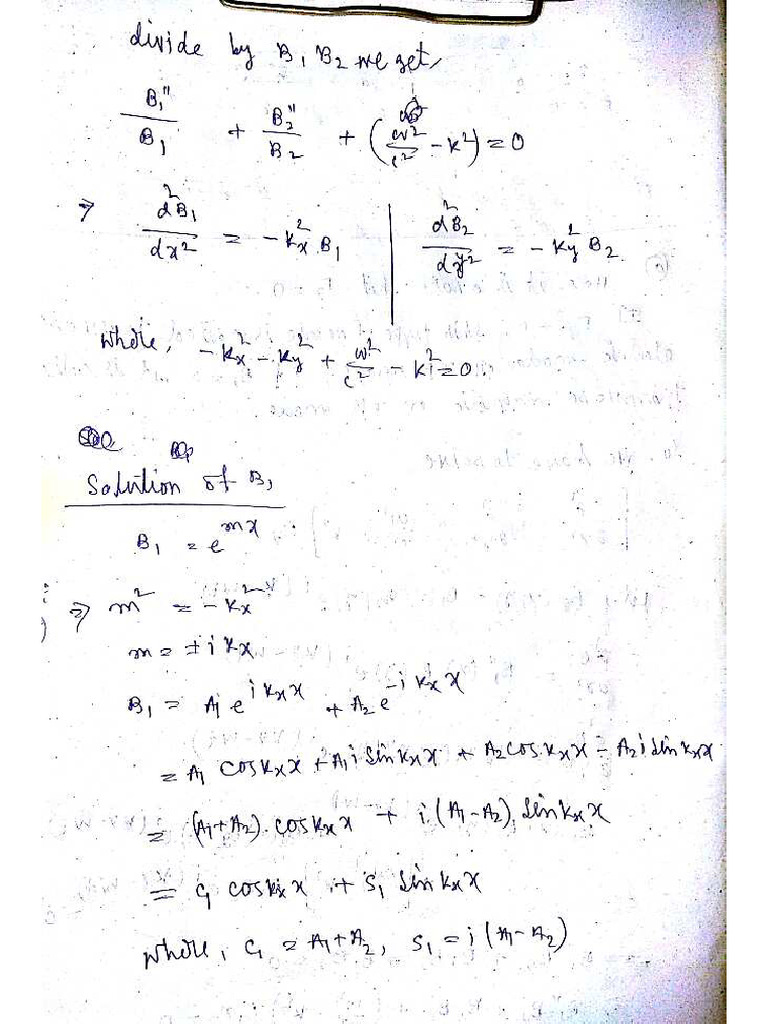 divide by B₁ B₂ we get,
B₁''/B₁ + B₂''/B₂ + (ω²/c² - k²) = 0
⇒ d²B₁/dx² = -kx² B₁ | d²B₂/dy² = -ky² B₂
where, -kx² - ky² + ω²/c² - k² = 0.
Solution of B₁
B₁ = e^mx
⇒ m² = -kx²
m = ± i kx
B₁ = A₁ e^i kx x + A₂ e^-i kx x
= A₁ cos kx x + A₁ i sin kx x + A₂ cos kx x - A₂ i sin kx x
= (A₁+A₂). cos kx x + i (A₁-A₂). sin kx x
= C₁ cos kx x + S₁ sin kx x
where, C₁ = A₁+A₂, S₁ = i (A₁-A₂)